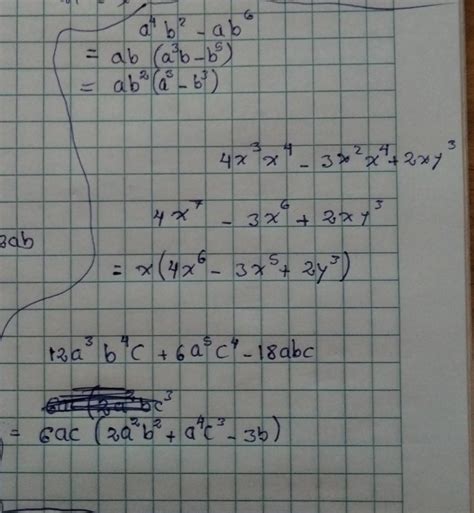 a⁴b² - ab⁶
= ab (a³b - b⁵)
= ab² (a³ - b³)
4x³x⁴ - 3x²x⁴ + 2xy³
4x⁷ - 3x⁶ + 2xy³
3ab
= x (4x⁶ - 3x⁵ + 2y³)
12a³b⁴c + 6a⁵c⁴ - 18abc
= 6ac (2a²b² + a⁴c³ - 3b)